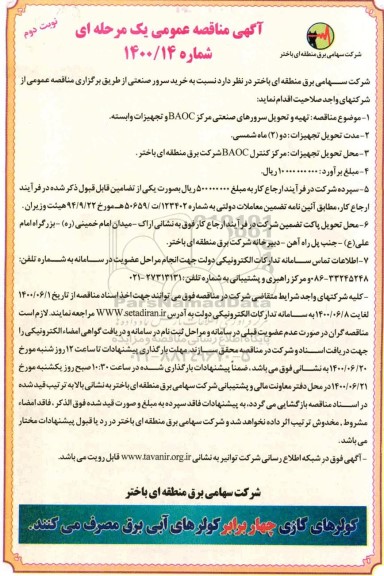 نوبت دوم
آگهی مناقصه عمومی یک مرحله ای
شماره ۱۴۰۰/۱۴
شرکت سهامی برق منطقه ای باختر
شرکت سهامی برق منطقه ای باختر در نظر دارد نسبت به خرید سرور صنعتی از طریق برگزاری مناقصه عمومی از
شرکتهای واجد صلاحیت اقدام نماید:
۱-موضوع مناقصه: تهیه و تحویل سرورهای صنعتی مرکز BAOC و تجهیزات وابسته.
۲-مدت تحویل تجهیزات: دو (۲) ماه شمسی.
۳-محل تحویل تجهیزات: مرکز کنترل BAOC شرکت برق منطقه ای باختر.
۴-مبلغ برآورد: ریال.
۵-سپرده شرکت در فرآیند ارجاع کار به مبلغ ریال بصورت یکی از تضامین قابل قبول ذکر شده در فرآیند
ارجاع کار، مطابق آئین نامه تضمین معاملات دولتی به شماره ۱۲۳۴۰۲/ت۵۰۶۵۹هـ مورخ ۹۴/۹/۲۲ هیئت وزیران.
۶-محل تحویل پاکت تضمین شرکت در فرآیند ارجاع کار فوق به نشانی اراک - میدان امام خمینی (ره) - بزرگراه امام
علی(ع) - جنب پل راه آهن - دبیرخانه شرکت برق منطقه ای باختر.
۷- اطلاعات تماس سامانه تدارکات الکترونیکی دولت جهت انجام مراحل عضویت در سامانه به شماره تلفن:
۳۳۲۴۵۲۴۸-۰۸۶ و مرکز راهبری و پشتیبانی به شماره تلفن: ۲۷۳۱۳۱۳۱-۰۲۱
-کلیه شرکتهای واجد شرایط متقاضی شرکت در مناقصه فوق می توانند جهت اخذ اسناد مناقصه از تاریخ ۱۴۰۰/۰۶/۱
لغایت ۱۴۰۰/۰۶/۸ به سامانه تدارکات الکترونیکی دولت به آدرس WWW.setadiran.ir مراجعه نمایند. لازم است
مناقصه گران در صورت عدم عضویت قبلی در سامانه، مراحل ثبت نام در سامانه و دریافت گواهی امضاء الکترونیکی را
جهت دریافت اسناد و شرکت در مناقصه محقق سازند. مهلت بارگذاری پیشنهادات تا ساعت ۱۲ روز شنبه مورخ
۱۴۰۰/۰۶/۲۰ به نشانی فوق می باشد، ضمناً پیشنهادات بارگذاری شده در ساعت ۱۰:۳۰ صبح روز یکشنبه مورخ
۱۴۰۰/۰۶/۲۱ در محل دفتر معاونت مالی و پشتیبانی شرکت سهامی برق منطقه ای باختر به نشانی بالا به ترتیب قید شده
در اسناد مناقصه بازگشایی می گردد، به پیشنهادات فاقد سپرده به مبلغ و صورت قید شده فوق الذکر، فاقد امضاء،
مشروط، مخدوش ترتیب اثر داده نخواهد شد و شرکت سهامی برق منطقه ای باختر در رد یا قبول پیشنهادات مختار
می باشد.
- آگهی فوق در شبکه اطلاع رسانی شرکت توانیر به نشانی www.tavanir.org.ir قابل رویت می باشد.
شرکت سهامی برق منطقه ای باختر
کولرهای گازی چهار برابر کولرهای آبی برق مصرف می کنند.